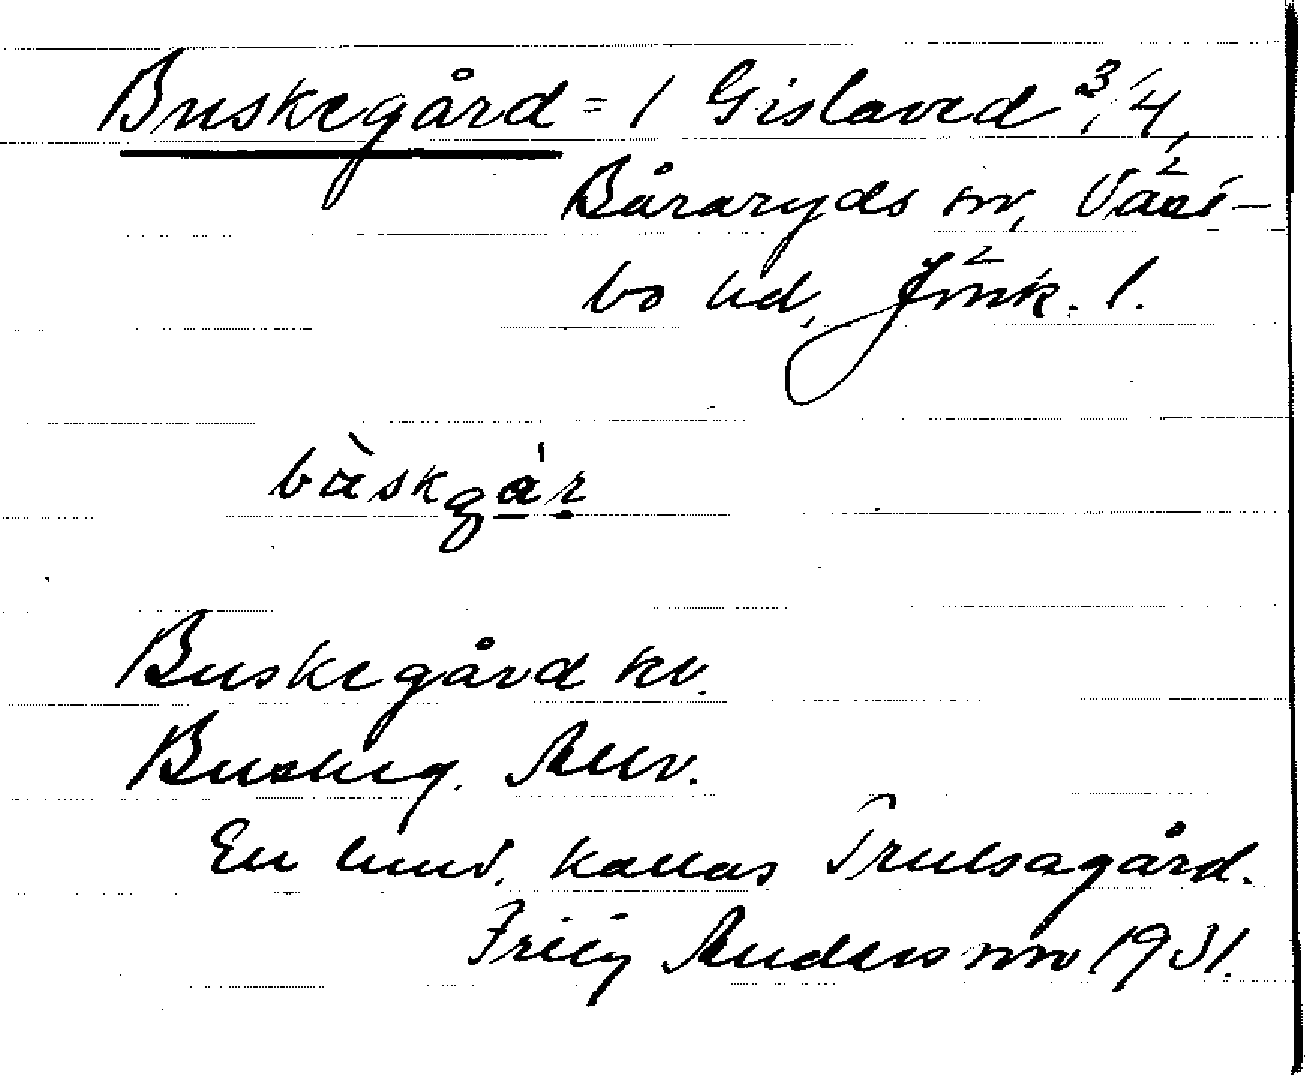 Buskegård = 1 Gislaved 3/4,
Båraryds sn, Väst-
bo hd, Jönk. l.
bàskgá̱ṟ
Buskegård kv.
Buskeg.
En hmd. kallas Trulsagård.
Frey Andersson 1931.